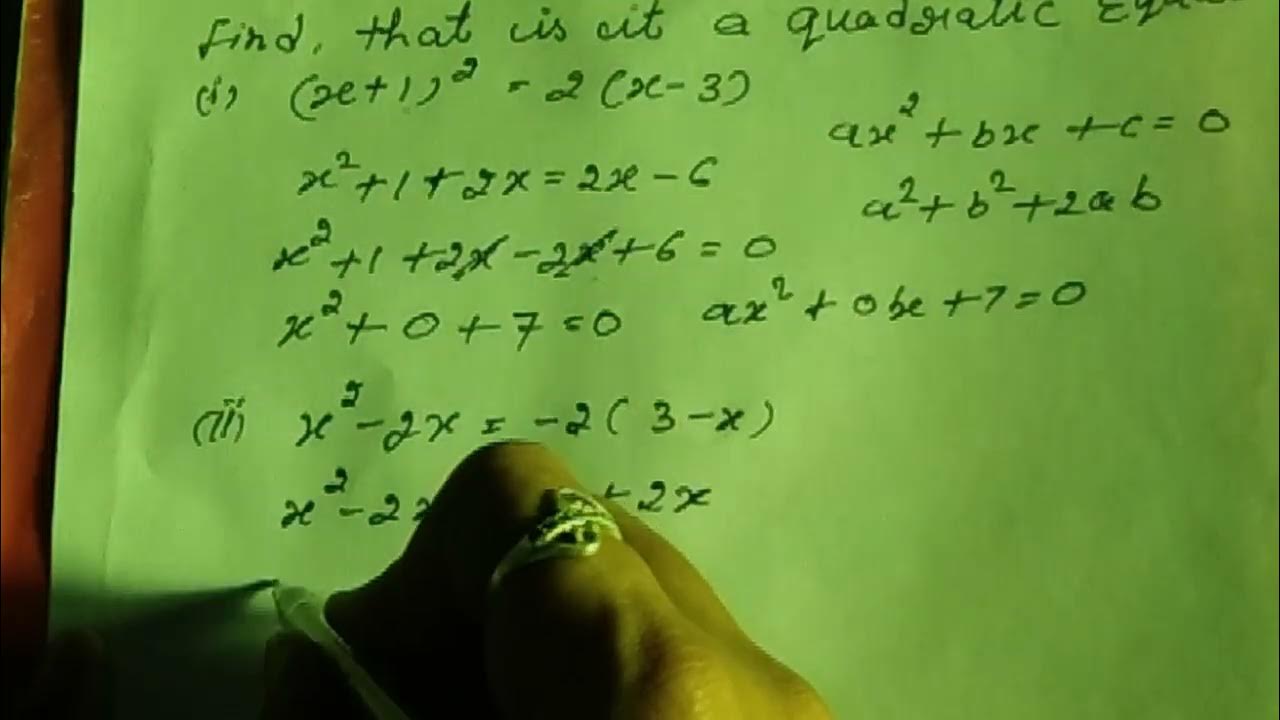 find, that is it a quadratic
(i) (x+1)² = 2(x-3)
ax² + bx + c = 0
x² + 1 + 2x = 2x - 6
a² + b² + 2ab
x² + 1 + 2x - 2x + 6 = 0
x² + 0 + 7 = 0
ax² + 0x + 7 = 0
(ii) x² - 2x = -2(3-x)
x² - 2x + 2x